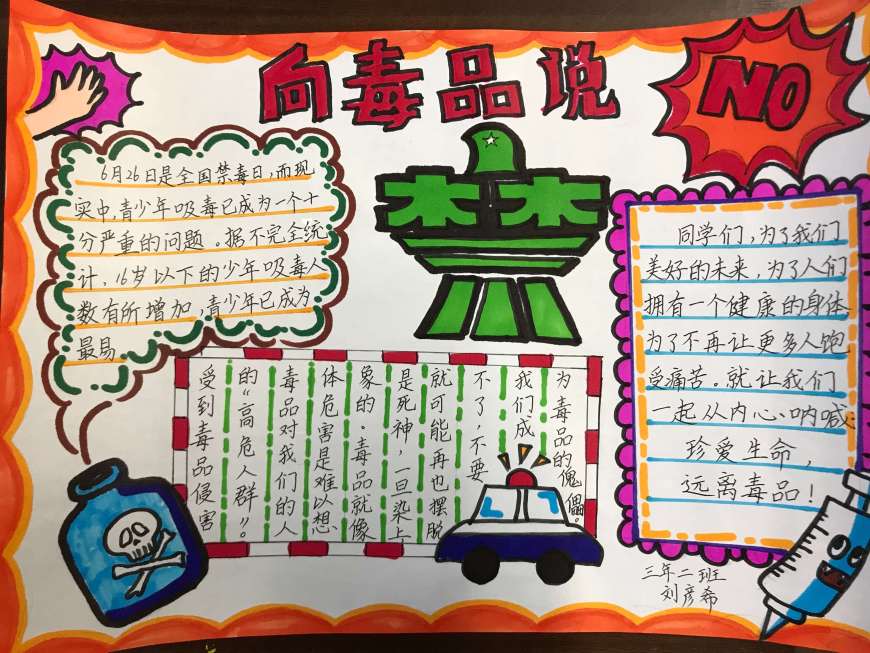 向毒品说
NO
禁
6月26日是全国禁毒日,而现
实中,青少年吸毒已成为一个十
分严重的问题。据不完全统
计,16岁以下的少年吸毒人
数有所增加,青少年已成为
最易
受到毒品侵害
的“高危人群”。
毒品对我们的人
体危害是难以想
象的.毒品就像
是死神,一旦染上
就可能再也摆脱
不了,不要
我们成
为毒品的傀儡。
同学们,为了我们
美好的未来,为了人们
拥有一个健康的身体
为了不再让更多人饱
受痛苦。就让我们
一起从内心呐喊:
珍爱生命,
远离毒品!
三年二班
刘彦希